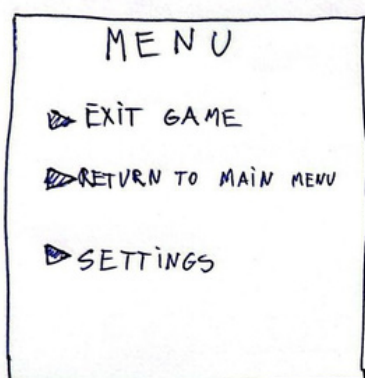 MENU
EXIT GAME
RETURN TO MAIN MENU
SETTINGS